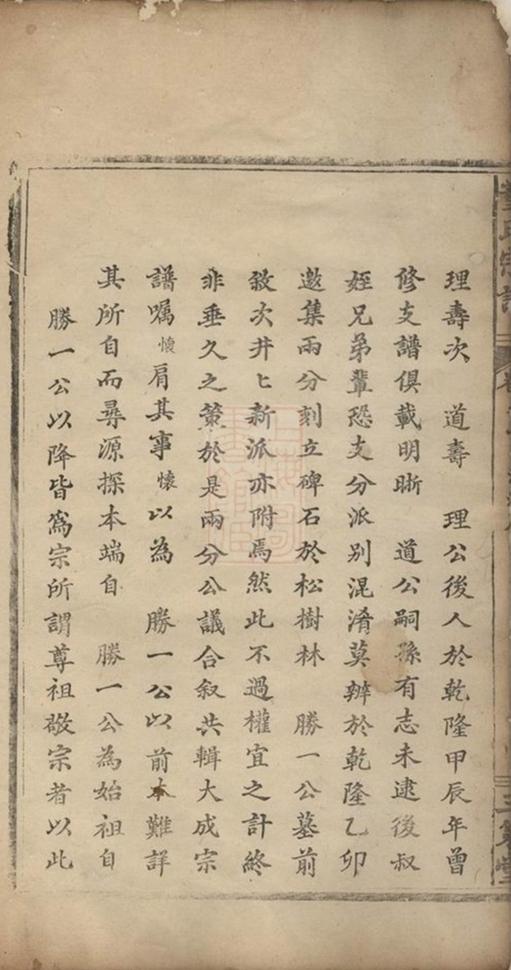 理壽次　道壽　理公後人於乾隆甲辰年曾
修支譜俱載明晰　道公嗣孫有志未逮後叔
姪兄弟輩恐支分派別混淆莫辨於乾隆乙卯
邀集兩分刻立碑石於松樹林　勝一公墓前
敘次井匕新派亦附焉然此不過權宜之計終
非垂久之策於是兩分公議合叙共輯大成宗
譜嘱懷肩其事懷以為　勝一公以前本難詳
其所自而尋源探本端自　勝一公為始祖自
勝一公以降皆爲宗所謂尊祖敬宗者以此